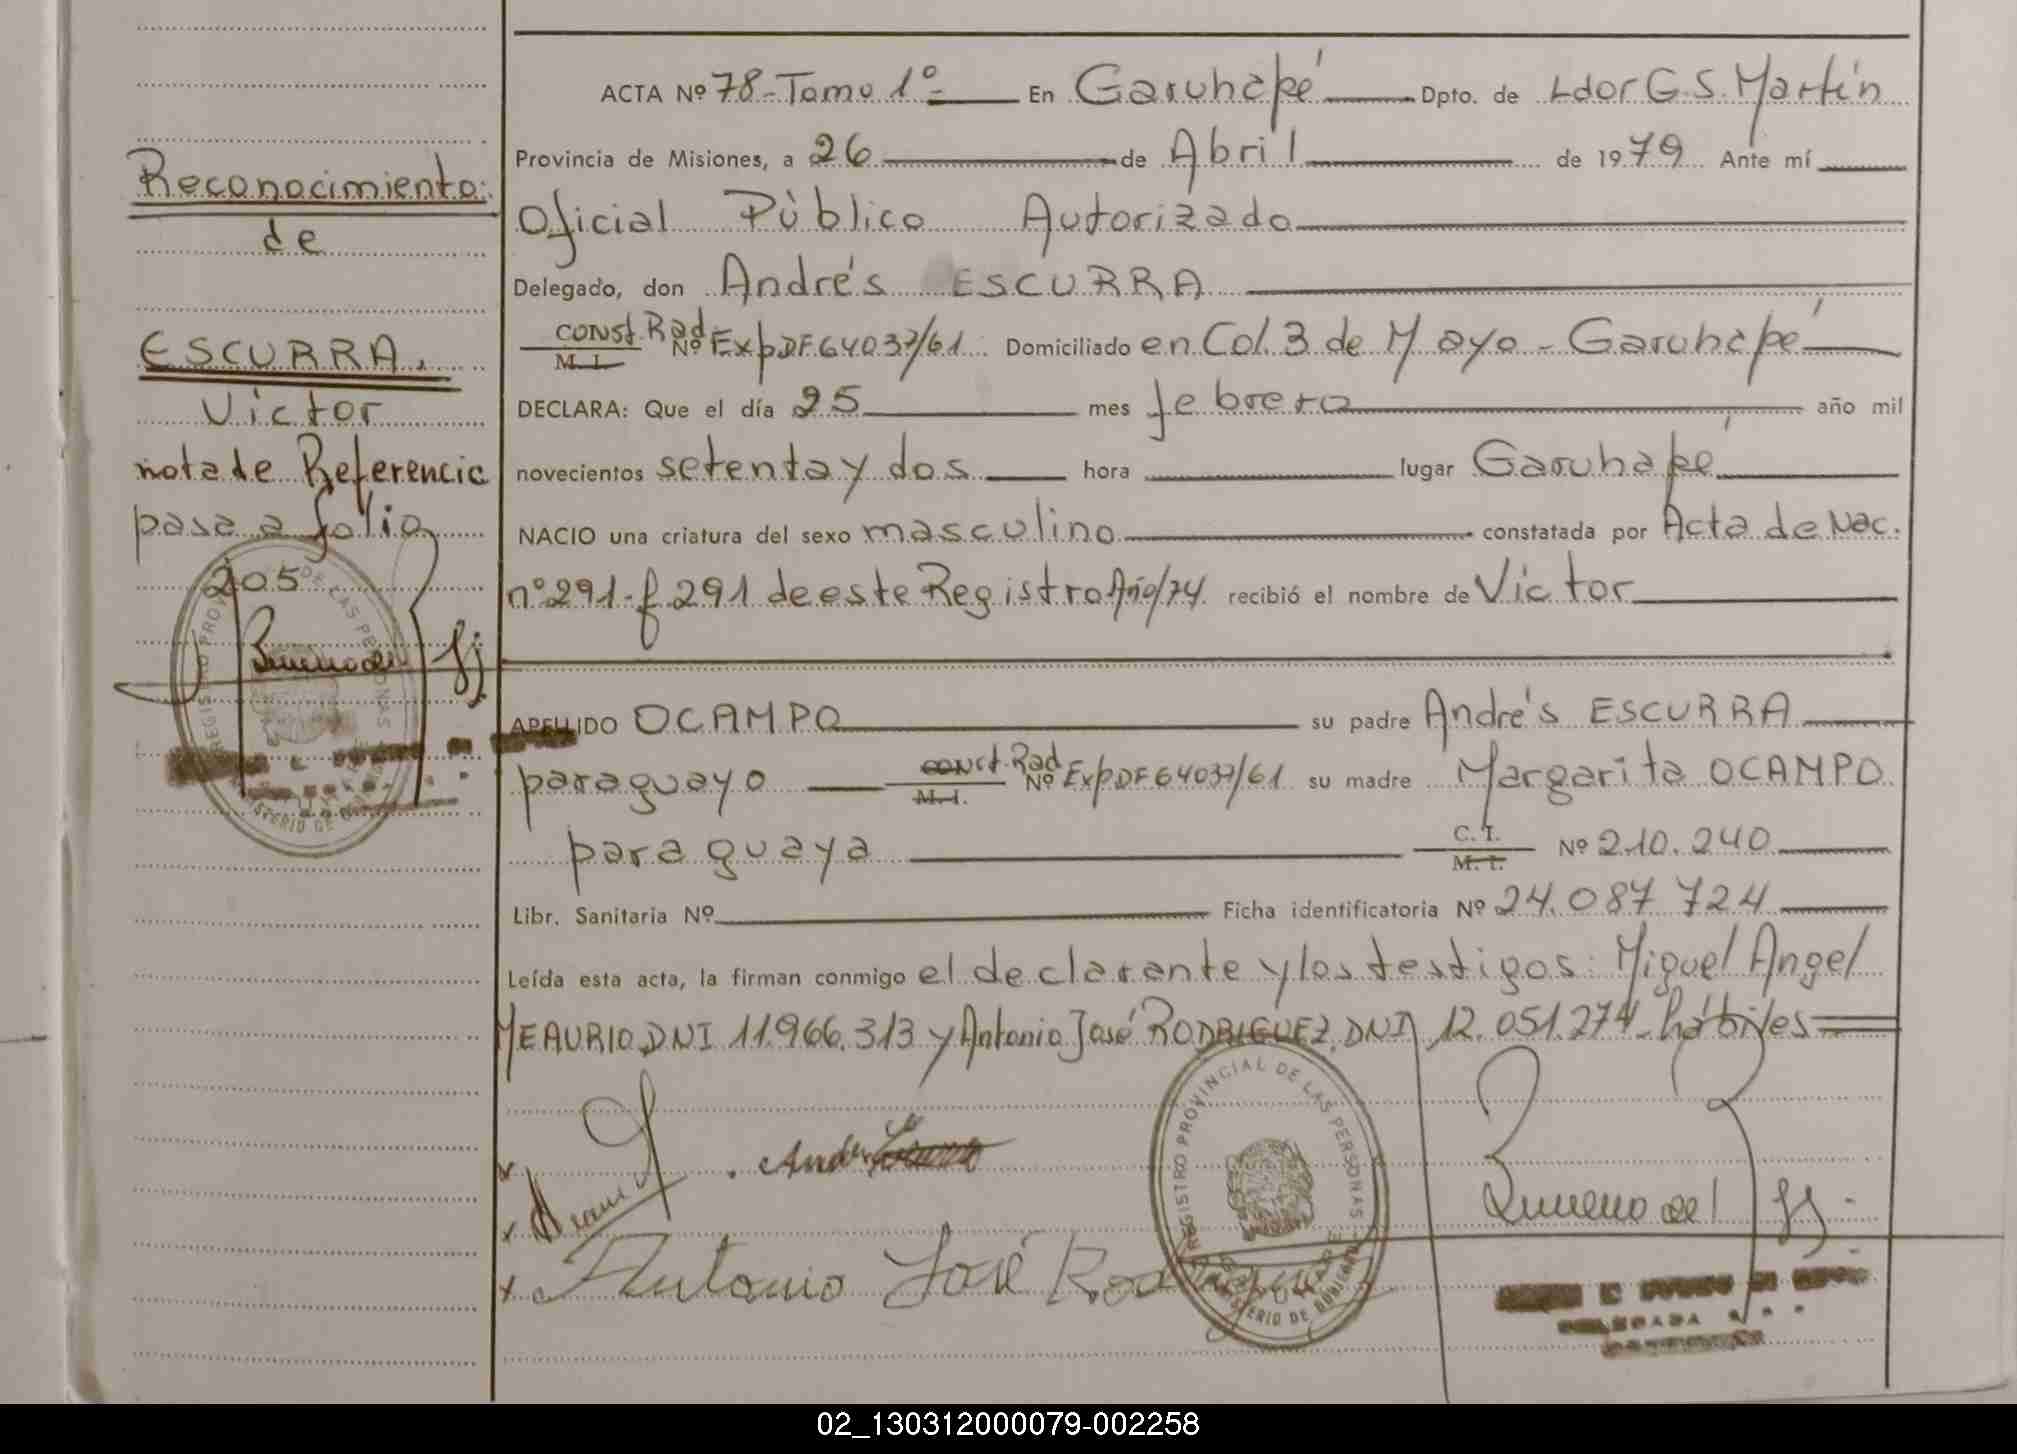 ACTA Nº 78 - Tomo 1º - En Garuhapé Dpto. de Ldor G.S. Martín
Provincia de Misiones, a 26 de Abril de 1979 Ante mí
Oficial Público Autorizado
Delegado, don Andrés ESCURRA
const. Rad Nº Exp DF 64037/61 Domiciliado en Col. 3 de Mayo - Garuhapé
M. I.
DECLARA: Que el día 25 mes febrero año mil
novecientos setenta y dos hora lugar Garuhapé
NACIO una criatura del sexo masculino constatada por Acta de Nac.
nº 291 - f 291 de este Registro Año/74. recibió el nombre de Víctor
APELLIDO OCAMPO su padre Andrés ESCURRA
paraguayo const. Rad Nº Exp DF 64037/61 su madre Margarita OCAMPO
M. I.
paraguaya C. I. Nº 210.240
M. I.
Libr. Sanitaria Nº Ficha identificatoria Nº 24.087 724
Leída esta acta, la firman conmigo el declarante y los testigos: Miguel Angel
MEAURIO, DNI 11.966.313 y Antonio José RODRIGUEZ, DNI 12.051.274 - hábiles
Antonio José
REGISTRO PROVINCIAL DE LAS PERSONAS
MINISTERIO DE GOBIERNO
DELEGADA
Reconocimiento
de
ESCURRA,
Víctor
nota de Referencia
pasa a folio
205
REGISTRO DE LAS PERSONAS
02_130312000079-002258